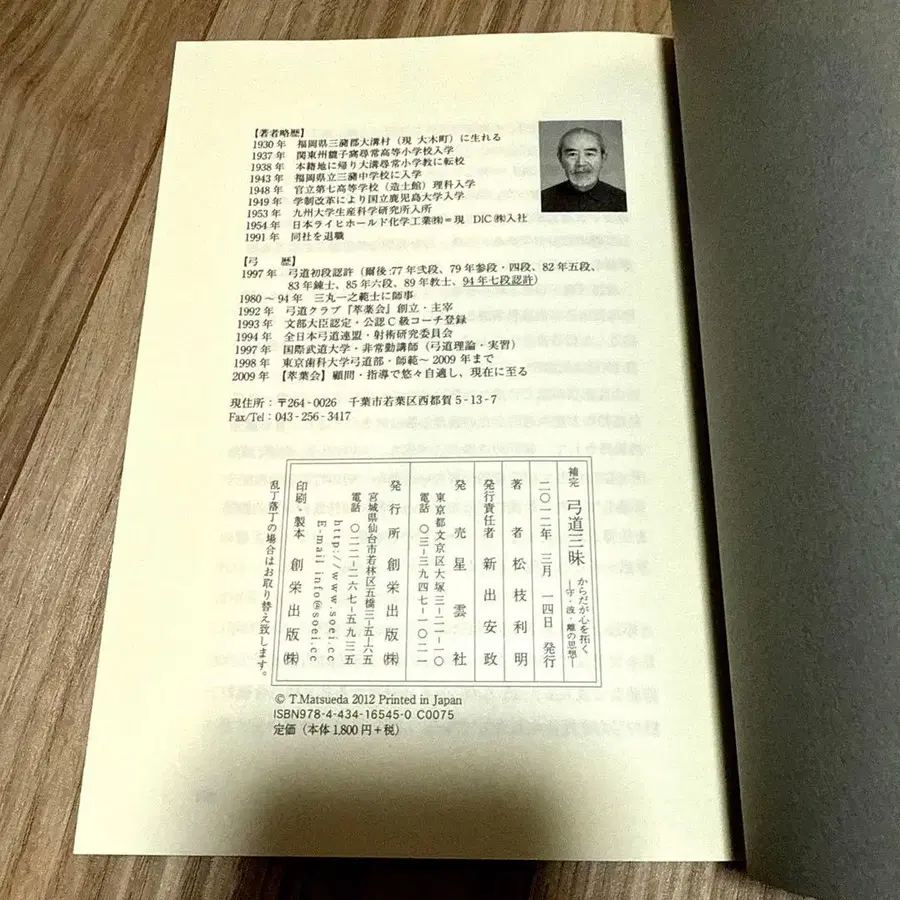 【著者略歴】
1930年 福岡県三潴郡大溝村（現 大木町）に生れる
1937年 関東州貔子窩尋常高等小学校入学
1938年 本籍地に帰り大溝尋常小学教に転校
1943年 福岡県立三潴中学校に入学
1948年 官立第七高等学校（造士館）理科入学
1949年 学制改革により国立鹿児島大学入学
1953年 九州大学生産科学研究所入所
1954年 日本ライヒホールド化学工業㈱＝現 DIC㈱入社
1991年 同社を退職
【弓 歴】
1997年 弓道初段認許（爾後:77年弐段、79年参段・四段、82年五段、
83年錬士、85年六段、89年教士、94年七段認許）
1980～94年 三丸一之範士に師事
1992年 弓道クラブ『萃葉会』創立・主宰
1993年 文部大臣認定・公認C級コーチ登録
1994年 全日本弓道連盟・射術研究委員会
1997年 国際武道大学・非常勤講師（弓道理論・実習）
1998年 東京歯科大学弓道部・師範～2009年まで
2009年 【萃葉会】顧問・指導で悠々自適し、現在に至る
現住所：〒264-0026 千葉市若葉区西都賀5-13-7
Fax/Tel：043-256-3417
補完 弓道三昧 からだが心を拓く
―守・破・離の思想―
二〇一二年 三月 一四日 発行
著者 松枝利明
発行責任者 新出安政
発売 星雲社
東京都文京区大塚三-二一-一〇
電話 〇三-三九四七-一〇二一
発行所 創栄出版㈱
宮城県仙台市若林区五橋三-五-六五
電話 〇二二-二六七-五九二五
http://www.soei.cc
E-mail info@soei.cc
印刷・製本 創栄出版㈱
乱丁落丁の場合はお取り替え致します。
© T.Matsueda 2012 Printed in Japan
ISBN978-4-434-16545-0 C0075
定価（本体1,800円＋税）